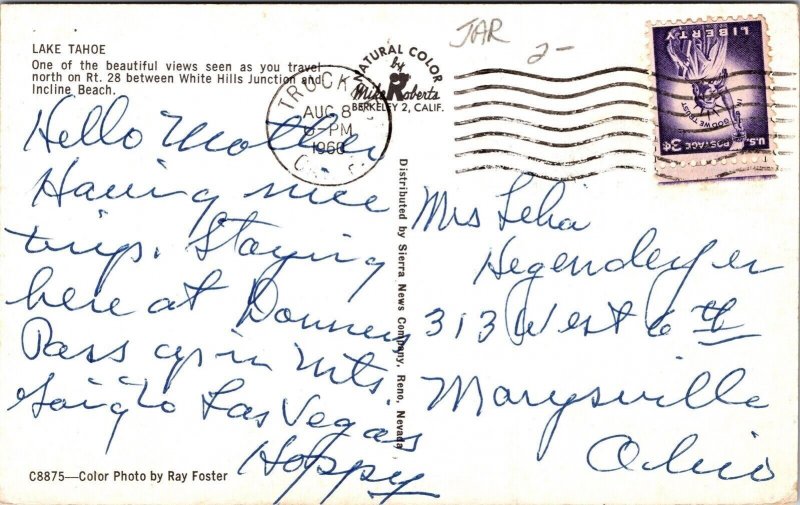 LAKE TAHOE
One of the beautiful views seen as you travel
north on Rt. 28 between White Hills Junction and
Incline Beach.
Hello Mother
Having nice
trip. Staying
here at Donners
Pass up in Mts.
Going to Las Vegas
Hoppy
C8875—Color Photo by Ray Foster
NATURAL COLOR
by
Mike Roberts
BERKELEY 2, CALIF.
Distributed by Sierra News Company, Reno, Nevada
TRUCKEE
AUG 8
PM
1960
JAR
2-
LIBERTY
IN GOD WE TRUST
U.S. POSTAGE 3¢
Mrs Lelia
Hegenderfer
313 West 6th
Marysville
Ohio